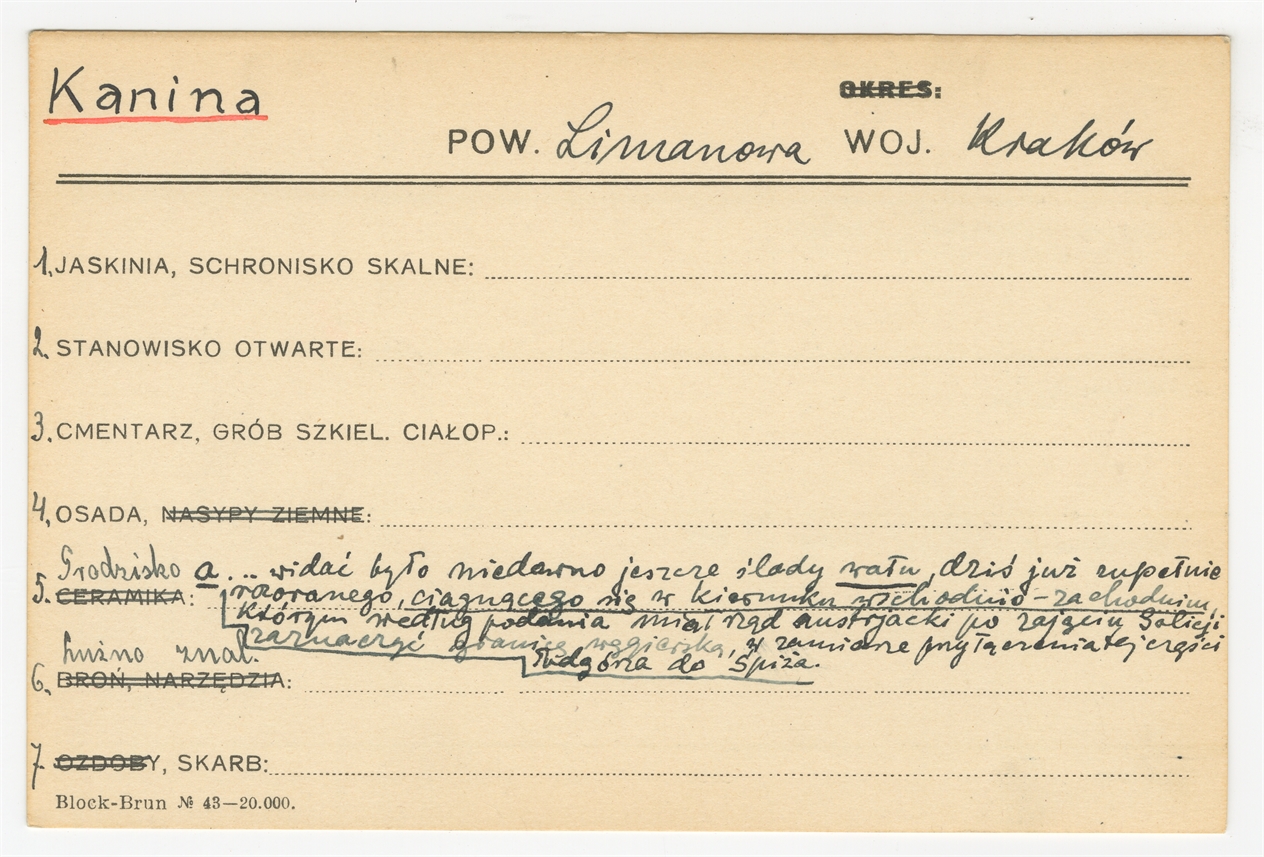 Kanina
OKRES:
POW. Limanowa WOJ. Kraków
1. JASKINIA, SCHRONISKO SKALNE:
2. STANOWISKO OTWARTE:
3. CMENTARZ, GRÓB SZKIEL. CIAŁOP.:
4. OSADA, NASYPY ZIEMNE:
Grodzisko a... widać było niedawno jeszcze ślady wału, dziś już zupełnie
5. CERAMIKA: rozoranego, ciągnącego się w kierunku wschodnio-zachodnim,
którym według podania miał rząd austrjacki po zajęciu Galicji
zaznaczyć granicę węgierską, w zamiarze przyłączenia tej części
luźno znal. Podgórza do Spiża.
6. BROŃ, NARZĘDZIA:
7 OZDOBY, SKARB:
Block-Brun № 43—20.000.